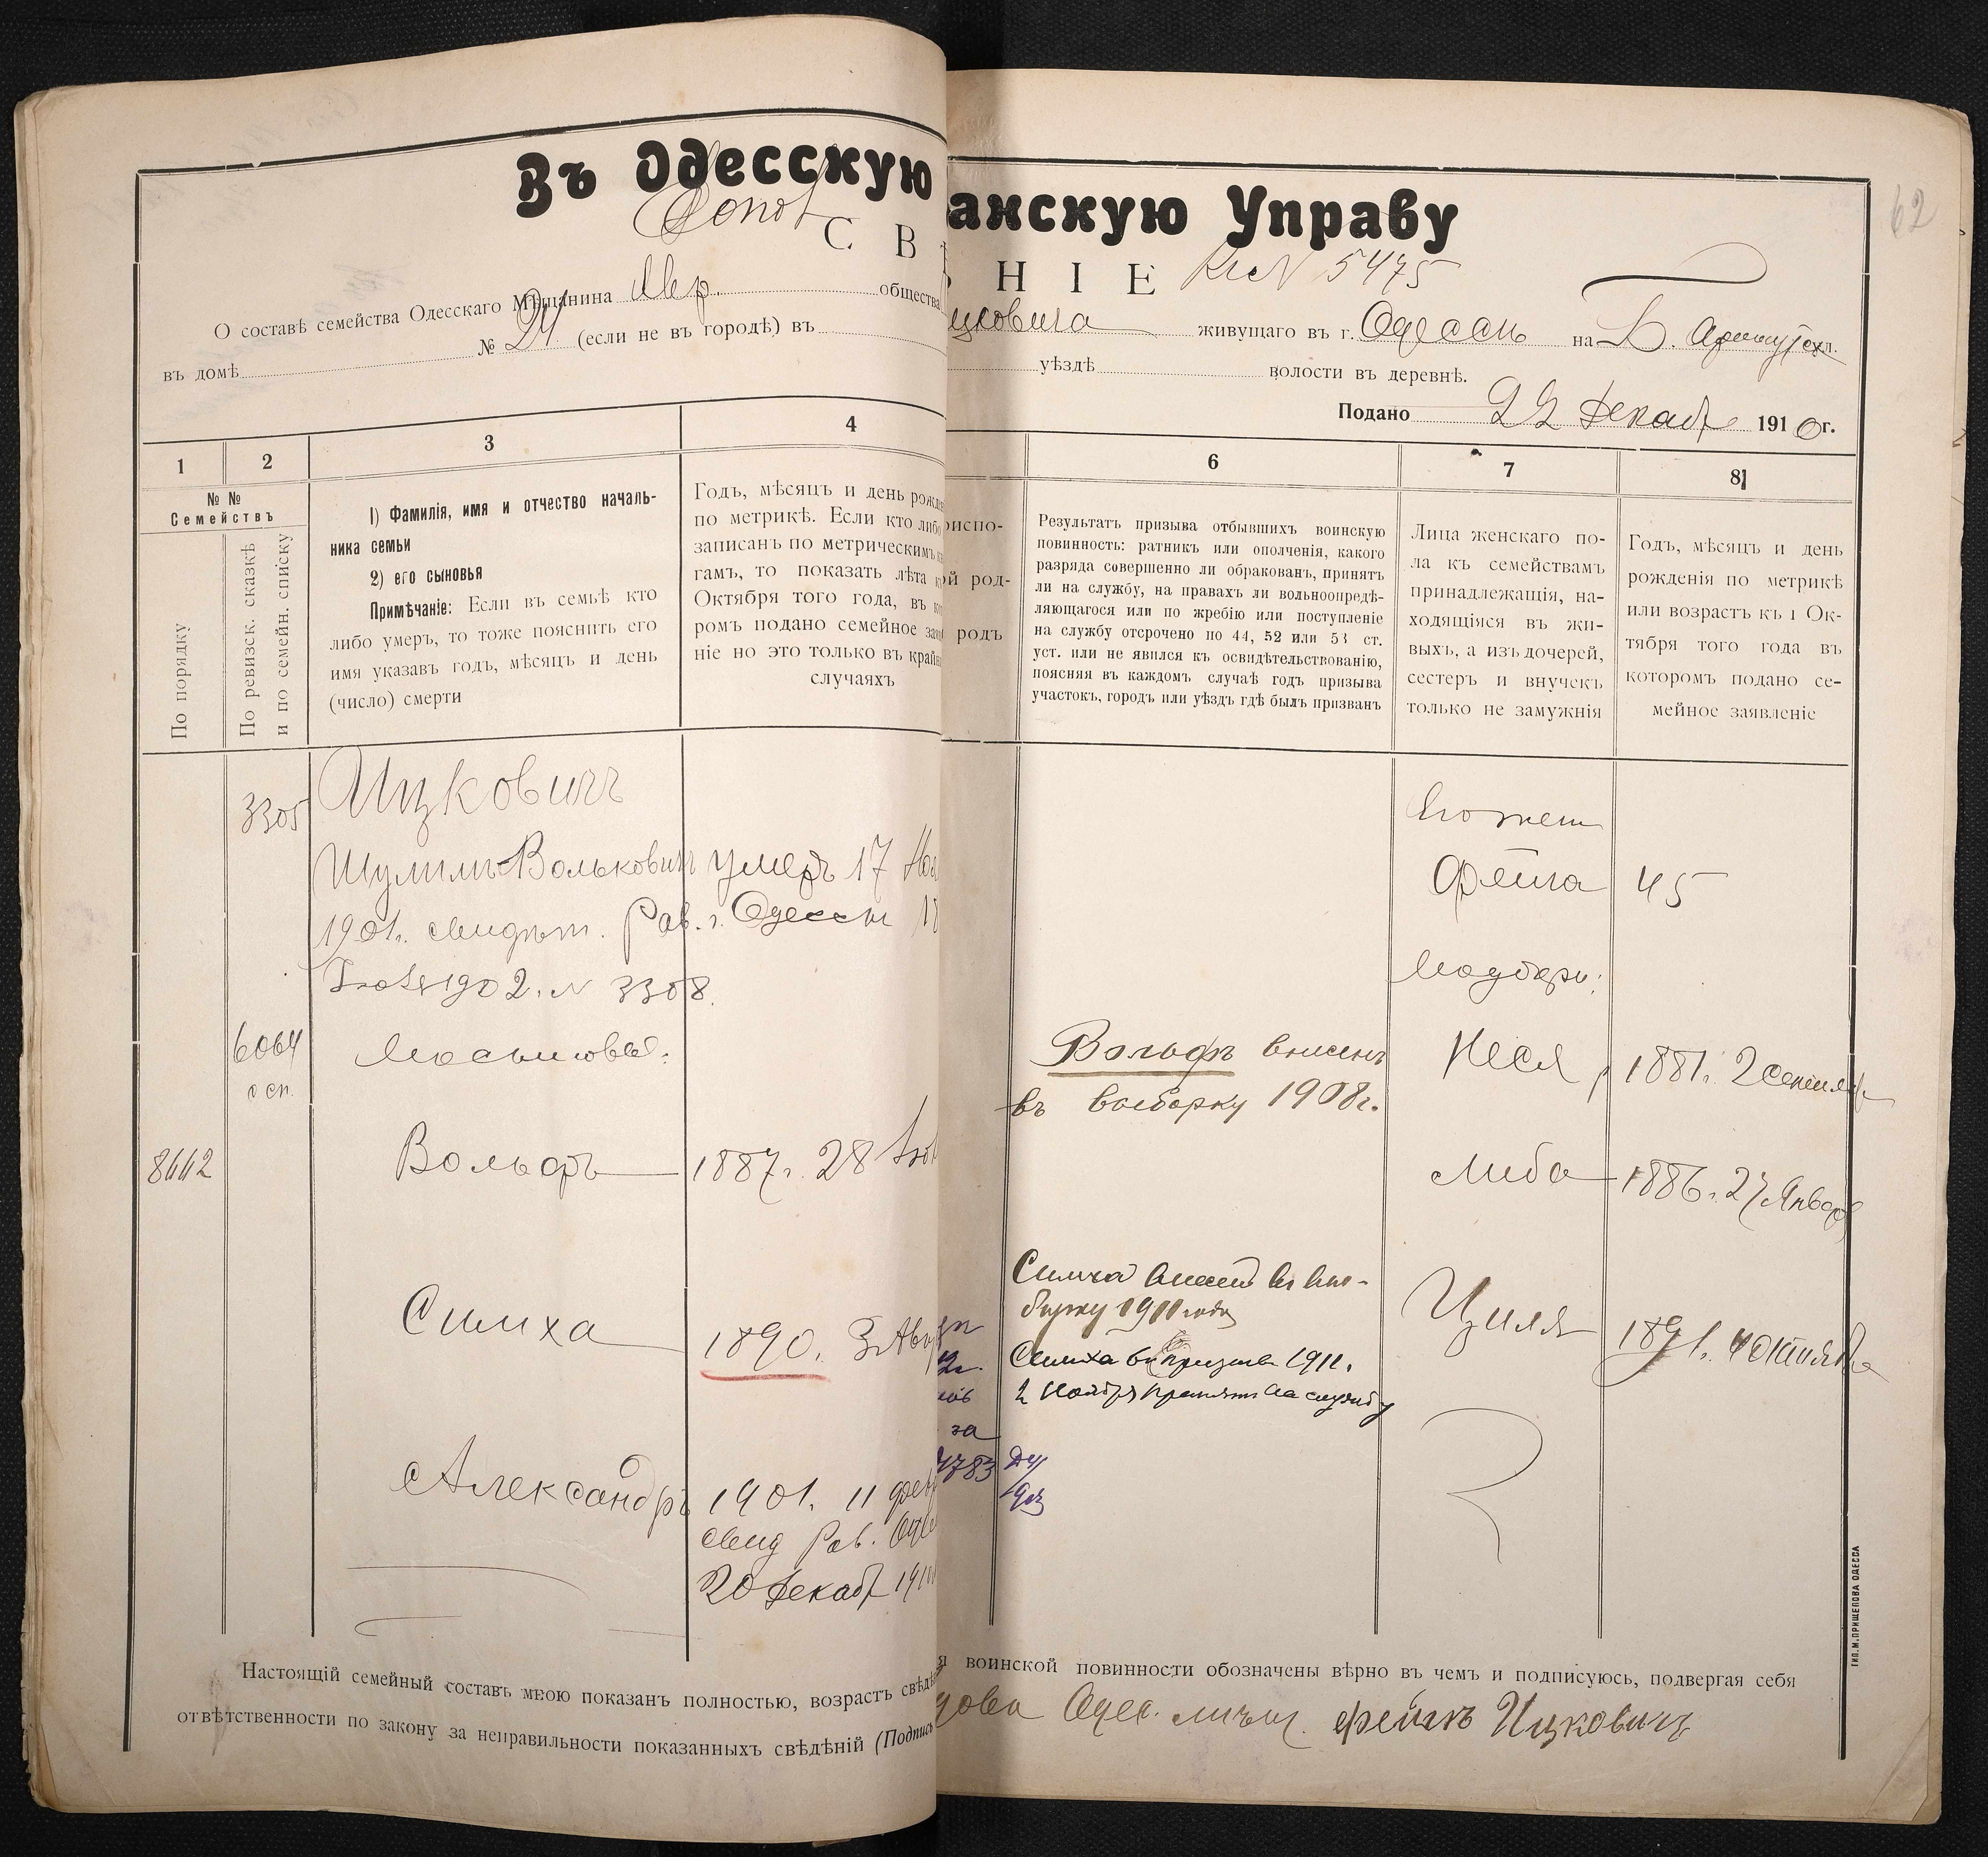 Въ Одесскую
анскую Управу
62
С В
Н І Е
№ 5475
О составѣ семейства Одесскаго Мѣщанина Евр. общества
цковича живущаго въ г. Одессѣ на Б. Арнаутск ул.
въ домѣ № 24 (если не въ городѣ) въ
уѣздѣ волости въ деревнѣ.
Подано 22 Декаб 1910г.
1
2
3
4
6
7
8
№ №
Семействъ
По порядку
По ревизск. сказкѣ
и по семейн. списку
1) Фамилія, имя и отчество началь-
ника семьи
2) его сыновья
Примѣчаніе: Если въ семьѣ кто
либо умеръ, то тоже пояснить его
имя указавъ годъ, мѣсяцъ и день
(число) смерти
Годъ, мѣсяцъ и день рожд
по метрикѣ. Если кто либо
записанъ по метрическимъ
гамъ, то показать лѣта
Октября того года, въ
ромъ подано семейное
ніе но это только въ край
случаяхъ
испо-
й род-
родъ
Результатъ призыва отбывшихъ воинскую
повинность: ратникъ или ополченія, какого
разряда совершенно ли обракованъ, принятъ
ли на службу, на правахъ ли вольноопредѣ-
ляющагося или по жребію или поступленіе
на службу отсрочено по 44, 52 или 53 ст.
уст. или не явился къ освидѣтельствованію,
поясняя въ каждомъ случаѣ годъ призыва
участокъ, городъ или уѣздъ гдѣ былъ призванъ
Лица женскаго по-
ла къ семействамъ
принадлежащія, на-
ходящіяся въ жи-
выхъ, а изъ дочерей,
сестеръ и внучекъ
только не замужнія
Годъ, мѣсяцъ и день
рожденія по метрикѣ
или возрастъ къ 1 Ок-
тября того года въ
которомъ подано се-
мейное заявленіе
3305
Ицковичъ
Шулимъ Вольковичъ умеръ 17
1901г. свидѣт. Рав. г. Одессы 18
1902. № 3308.
6064
о сп.
8662
Вольфъ 1887г. 28
Симха 1890. 3 Авг
Александръ 1901. 11 фев
свид Рав. Оде
20 Декаб 191
Вольфъ внесенъ
въ выборку 1908г.
Симха внесенъ въ вы-
борку 1911 года
Симха въ призывъ 1911.
2 Ноября принятъ на службу
за
4783
Фейга 45
Неся, 1881. 2 Сентяб
Либа 1886. 27 Января
Циля 1891. 4 Октября
Настоящій семейный составъ мною показанъ полностью, возрастъ свѣдѣ
я воинской повинности обозначены вѣрно въ чемъ и подписуюсь, подвергая себя
отвѣтственности по закону за неправильности показанныхъ свѣдѣній (Подпись
дова Одес. мѣщ. Фейга Ицковичъ
ТИП. М. ПРИЩЕПОВА ОДЕССА